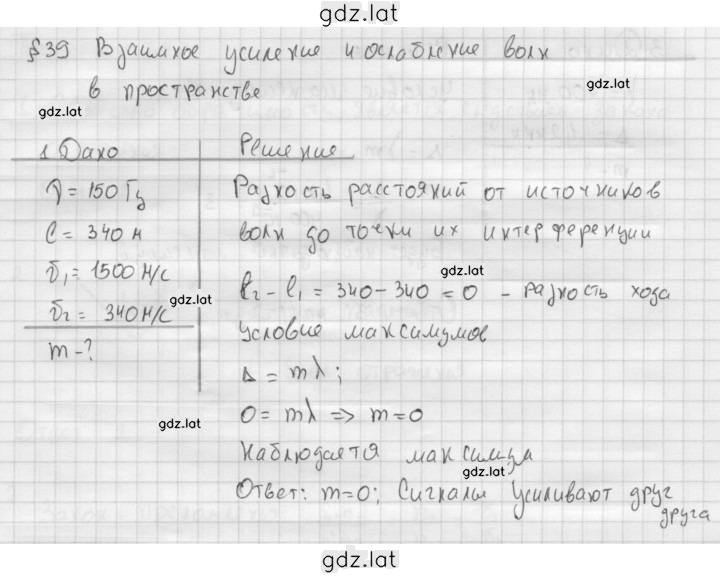 gdz.lat
§39 Взаимное усиление и ослабление волн
в пространстве
gdz.lat
gdz.lat
1 Дано
Решение
ν = 150 Гц
Разность расстояний от источников
l = 340 м
волн до точки их интерференции
υ₁ = 1500 м/с
gdz.lat
gdz.lat
l₂ - l₁ = 340 - 340 = 0 - разность хода
υ₂ = 340 м/с
Условие максимумов
m - ?
Δ = mλ;
0 = mλ => m = 0
gdz.lat
Наблюдается максимум
gdz.lat
Ответ: m=0; Сигналы усиливают друг
друга
gdz.lat